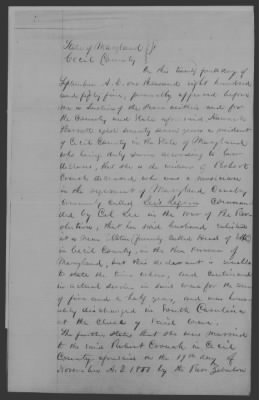 State of Maryland
Cecil County
On this twenty fourth day of
September A.D. one thousand eight hundred
and fifty five, personally appeared before
me a Justice of the Peace within and for
the County and State aforesaid Hannah
aged seventy seven years a resident
of Cecil County in the State of Maryland
who being duly sworn according to law
declares, that she is the widow of Robert
Crouch deceased who was a
in the regiment of Maryland Cavalry
Commonly called Lee's Legion Comman-
ded by Col Lee in the War of the Rev-
olution, that her said husband enlisted
at or near Elkton (formerly Called Head of Elk)
in Cecil County, in the then Province of
Maryland, but this declarant is unable
to state the time when, and Continued
in actual service in said war for the term
of five and a half years, and was honor-
ably discharged in South Carolina
at the close of said war.
She further states that she was married
to the said Robert Crouch in Cecil
County aforesaid on the day of
November A.D. by the Rev